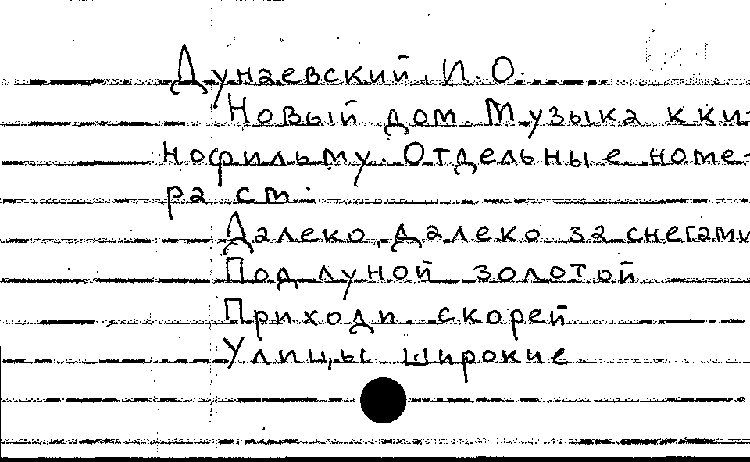 Дунаевский И.О.
Новый дом. Музыка к ки-
нофильму. Отдельные номе-
ра ст.:
Далеко, далеко за снегами
Под луной золотой
Приходи скорей
Улицы широкие